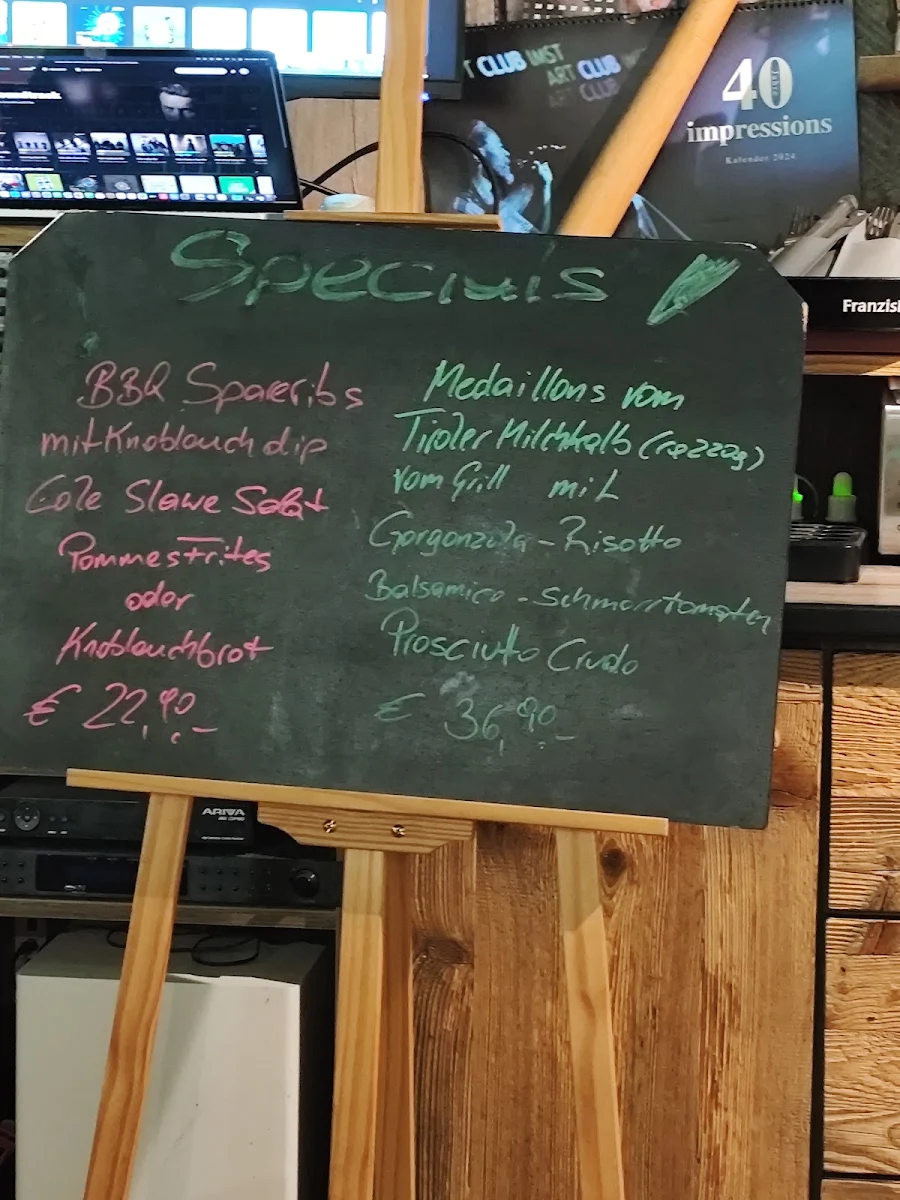 ART CLUB IMST
ART CLUB
ART CLUB
40
Jahre
impressions
Kalender 2024
Specials
BBQ Spareribs
mit Knoblauch dip
Cole Slawe Salat
Pommes Frites
oder
Knoblauchbrot
€ 22,90,-
Medaillons vom
Tiroler Milchkalb (ca 220g)
vom Grill mit
Gorgonzola - Risotto
Balsamico - Schmorrtomaten
Prosciutto Crudo
€ 36,90,-
ARIVA